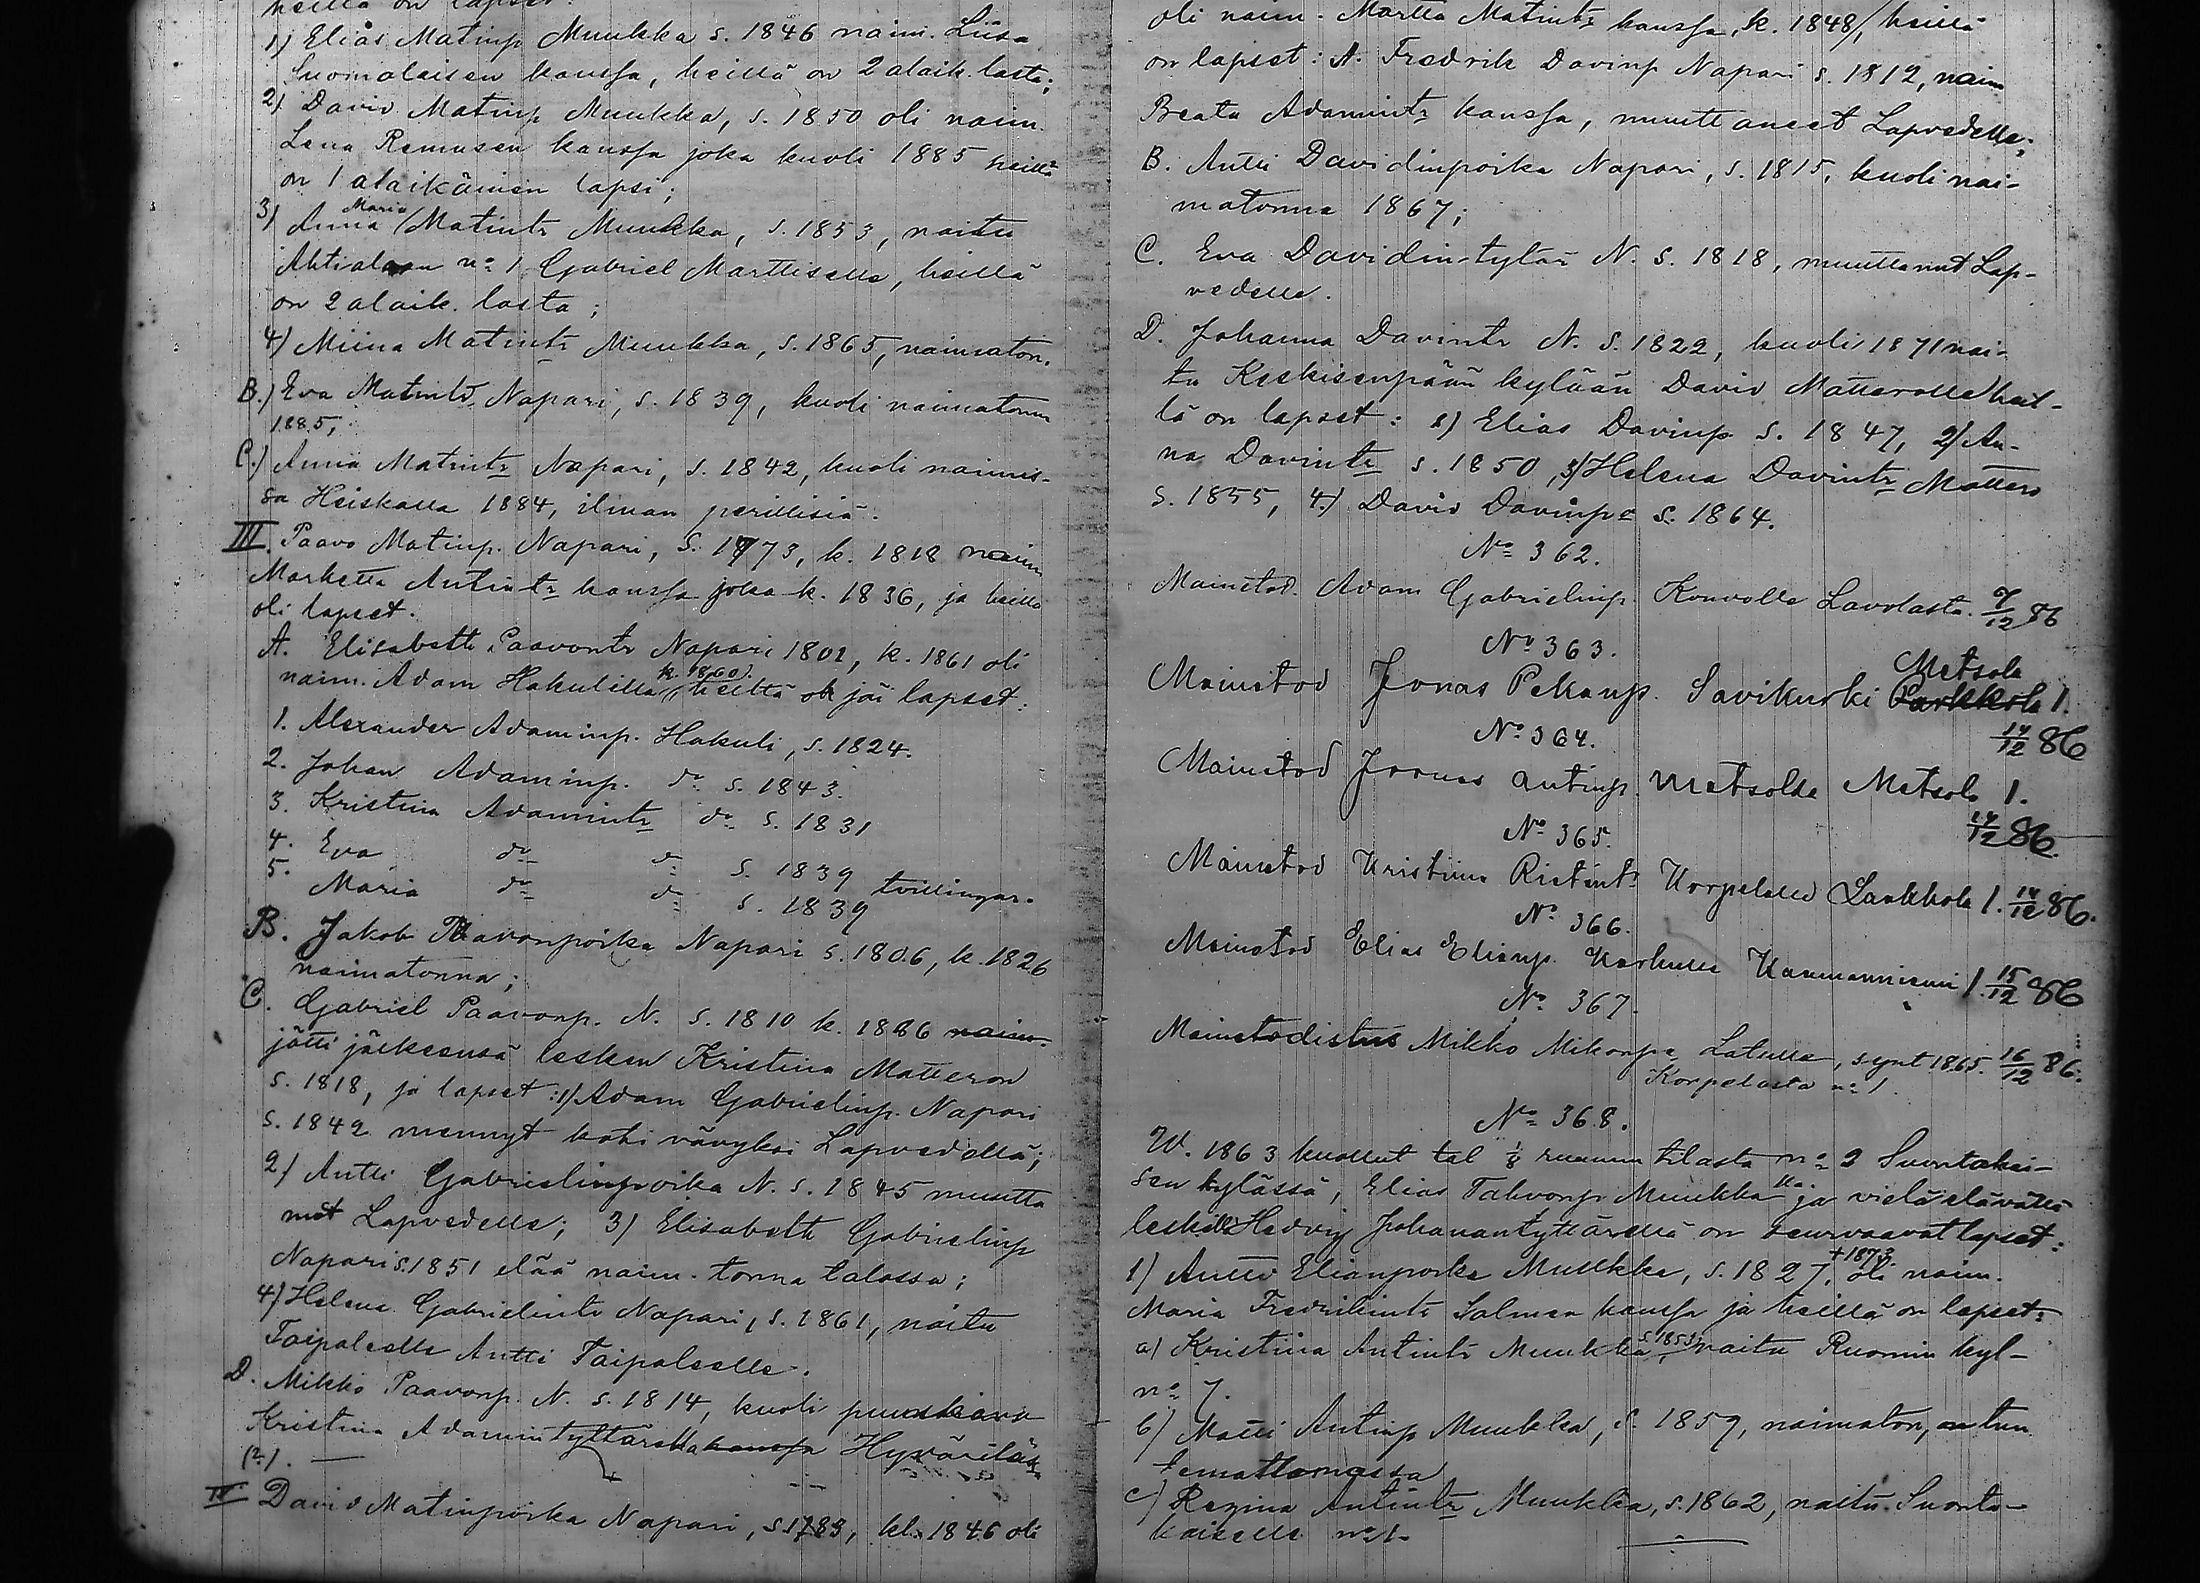 heillä on lapset:
1) Elias Matinp Muukka s. 1846 naim. Liisa
Suomalaisen kanssa, heillä on 2 alaik. lasta;
2) David Matinp Muukka, s. 1850 oli naim.
Lena Remusen kanssa joka kuoli 1885 heillä
on 1 alaikäinen lapsi;
3) Anna Maria Matintr Muukka, s. 1853, naitu
Ahtialaan no 1 Gabriel Marttiselle, heillä
on 2 alaik. lasta;
4) Miina Matintr Muukka, s. 1865, naimaton.
B.) Eva Matintr Napari, s. 1839, kuoli naimatonna
1885;
C.) Anna Matintr Napari, s. 1842, kuoli naimis-
sa Heiskalla 1884, ilman perillisiä.
III. Paavo Matinp. Napari, s. 1773, k. 1818 naim
Marketta Antintr kanssa joka k. 1836, ja heillä
oli lapset.
A. Elisabeth Paavontr Napari 1801, k. 1861 oli
naim. Adam Hakulilla k. 1860. heiltä jäi lapset:
1. Alexander Adaminp. Hakuli, s. 1824.
2. Johan Adaminp. do s. 1843.
3. Kristina Adamintr do s. 1831
4. Eva do do s. 1839
5. Maria do do s. 1839 tvillingar.
B. Jakob Paavonpoika Napari s. 1806, k. 1826
naimatonna;
C. Gabriel Paavonp. N. s. 1810 k. 1886 naim.
jätti jälkeensä lesken Kristina Matteron
s. 1818, ja lapset: 1) Adam Gabrielinp. Napari
s. 1842 mennyt koti vävyksi Lapvedellä;
2) Antti Gabrielinpoika N. s. 1845 muutta
nut Lapvedelle; 3) Elisabeth Gabrielinp
Napari s. 1851 elää naim. tonna talossa;
4) Helena Gabrielintr Napari, s. 1861, naitu
Taipaleelle Antti Taipaleelle.
D. Mikko Paavonp. N. s. 1814, kuoli
Kristina Adamintyttärellä kanssa Hyväriläs
(2).
IV David Matinpoika Napari, s. 1783, kl. 1846 oli
oli naim. Martta Matintr kanssa, k. 1848/, heillä
on lapset: A. Fredrik Davinp Napari s. 1812, naim
Beata Adamintr kanssa, muuttaneet Lapvedelle;
B. Antti Davidinpoika Napari, s. 1815, kuoli nai-
matonna 1867;
C. Eva Davidin-tytär N. s. 1818, muuttanut Lap-
vedelle.
D. Johanna Davintr N. s. 1822, kuoli 1871 nai-
tu Keskisenpään kylään David Matterolle) heil-
lä on lapset: 1) Elias Davinp s. 1847, 2) An-
na Davintr s. 1850, 3) Helena Davintr Mattero
s. 1855, 4.) David Davinp s. 1864.
No 362.
Mainetod. Adam Gabrielinp. Kouvolle Lavolasta. 7/12 86
No 363.
Mainetod Jonas Pekanp. Savikurki Metsola Parkkola 1.
14/12 86
No 364.
Mainetod Joonas Antinp. Metsolle Metsola 1.
14/12 86.
No 365.
Mainetod Kristiina Ristintr Korpelalle Laukkola 1. 14/12 86.
No 366.
Mainetod Elias Elianp. Karhulle 1. 15/12 86
No 367.
Mainetodistus Mikko Mikonp. Latulle, synt 1865. 16/12 86.
Korpelasta no 1.
No 368.
W. 1863 kuollut tal 1/8 ruunun tilasta no 2 Suontakai-
sen kylässä, Elias Tahvonp Muukka lla ja vielä elävällä
leskellä Hedvig Johanantyttärellä on seuraavat lapset:
1) Antti Elianpoika Muukka, s. 1827, +1873. oli naim.
Maria Fredrikintr Salmen kanssa ja heillä on lapset:
a) Kristiina Antintr Muukka s. 1853, naitu Ruomin kyl-
no 7.
b) Matti Antinp Muukka, s. 1859, naimaton, on tun
temattomassa
c) Regina Antintr Muukka, s. 1862, naitu Suonta-
kaiselle no 1.